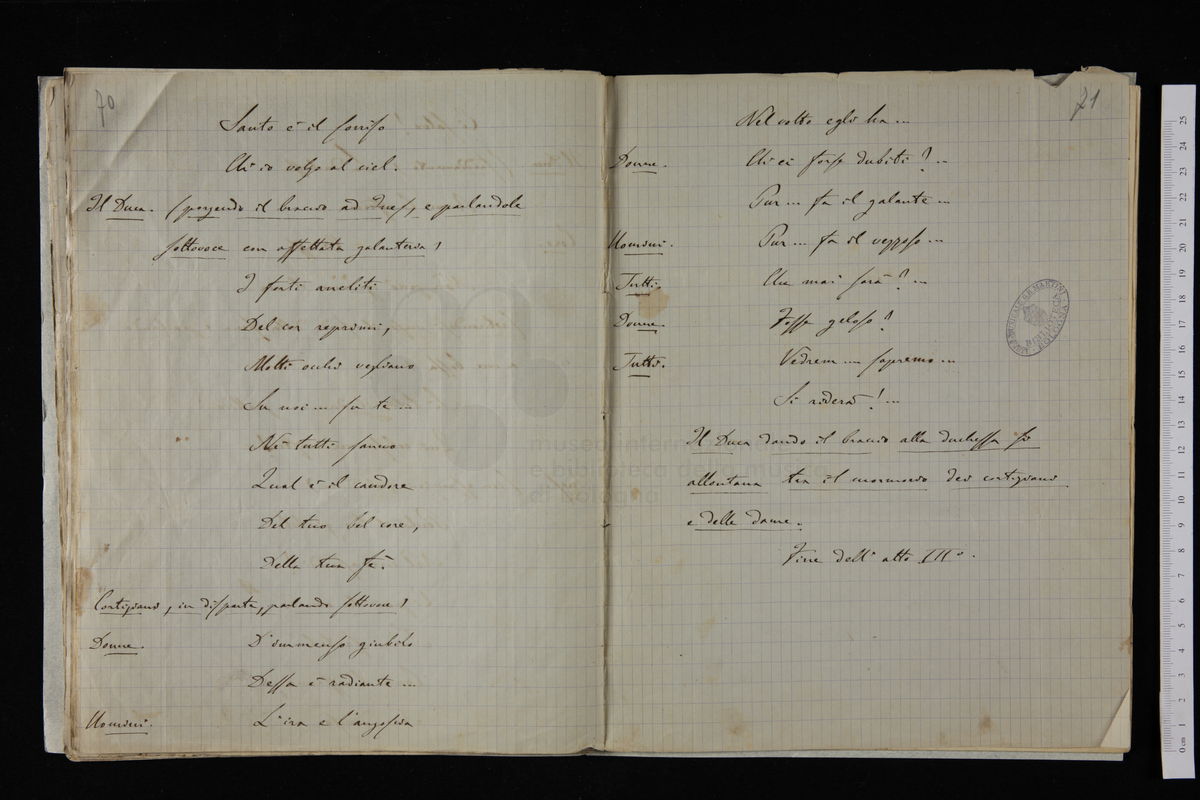 70
Santo è il sorriso
Ch'io volgo al ciel.
Il Duca. (porgendo il braccio ad Ines, e parlandole
sottovoce con affettata galanteria)
I forti aneliti
Del cor reprimi,
Molti occhi vegliano
Su noi ... su te ...
Nè tutti sanno
Qual è il candore
Del tuo bel core,
Della tua fè.
Cortigiani, in disparte, parlando sottovoce)
Donne. D'immenso giubilo
Dessa è radiante ...
Uomini. L'ira e l'angoscia
71
Nel volto egli ha ...
Donne. Chi ci forse dubiti? ..
Pur ... fa il galante ...
Uomini. Pur ... fa il vezzoso ...
Tutti. Che mai sarà? ...
Donne. Fosse geloso!
Tutti. Vedrem ... sapremo ...
Si riderà! ...
Il Duca dando il braccio alla duchessa si
allontana tra il mormorio dei cortigiani
e delle dame.
Fine dell'atto III°.
BIBLIOTECA